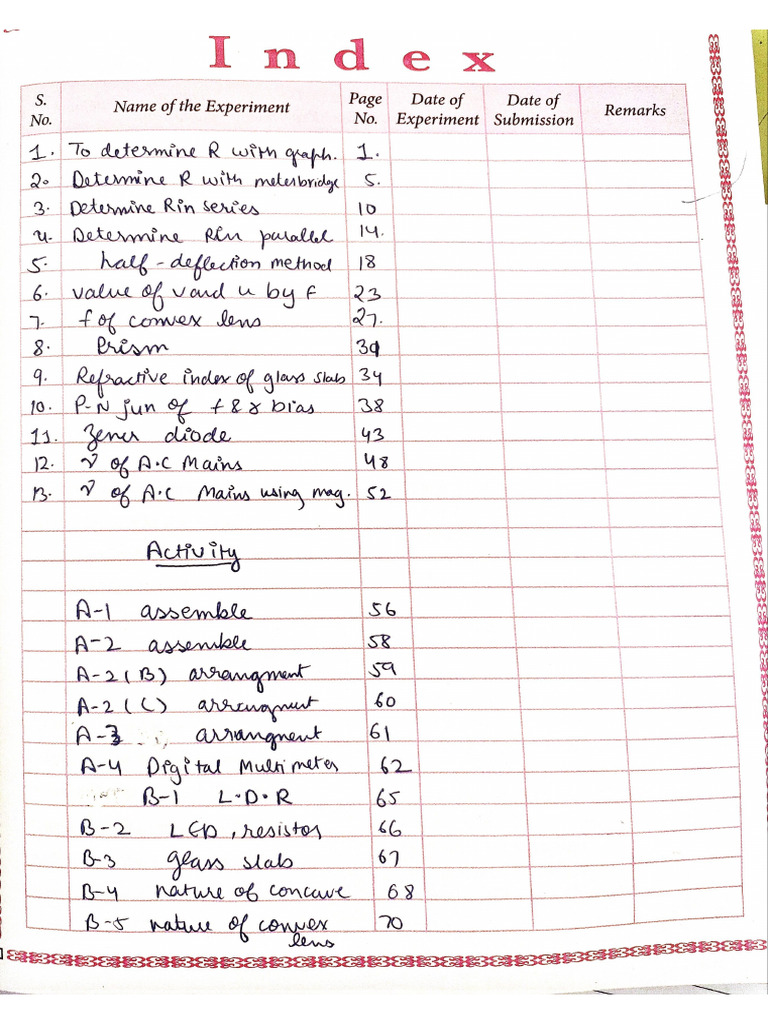 Index
S. No. Name of the Experiment Page No. Date of Experiment Date of Submission Remarks
1. To determine R with graph. 1.
2. Determine R with meterbridge 5.
3. Determine R in series 10
4. Determine R in parallel 14.
5. half-deflection method 18
6. value of v and u by f 23
7. f of convex lens 27.
8. Prism 31
9. Refractive index of glass slab 34
10. P-N jun of f & r bias 38
11. Zener diode 43
12. ν of A.C Mains 48
13. ν of A.C Mains using mag. 52
Activity
A-1 assemble 56
A-2 assemble 58
A-2(B) arrangment 59
A-2(C) arrangment 60
A-3 arrangment 61
A-4 Digital Multimeter 62
B-1 L.D.R 65
B-2 LED, resistor 66
B-3 glass slab 67
B-4 nature of concave 68
B-5 nature of convex 70
lens